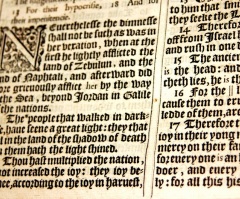 for their impenitencie. 18 And for
Neuerthelesse the dimnesse
shall not be such as was in
her vexation, when at the
first he lightly afflicted the
land of Zebulun, and the
land of Naphtali, and afterward did
more grieuously afflict her by the way
of the Sea, beyond Jordan in Galile
the nations.
The people that walked in dark-
haue seene a great light: they that
in the land of the shadow of death
them hath the light shined.
Thou hast multiplied the nation,
not increased the ioy: they ioy be-
according to the ioy in haruest,
they seeke the L
14 Therefore
off from Israel
and rush in one
15 The ancient
is the head: and
lies, he is the
16 For the ||
cause them to er
ledde of them, are
17 Therefore
ioy in their yong m
mercy on their fa
for euery one is an
doer, and euery
ly: for all this his